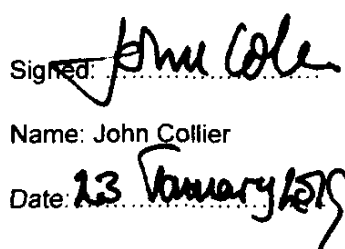 Signed: John Colle
Name: John Collier
Date: 23 January 2019